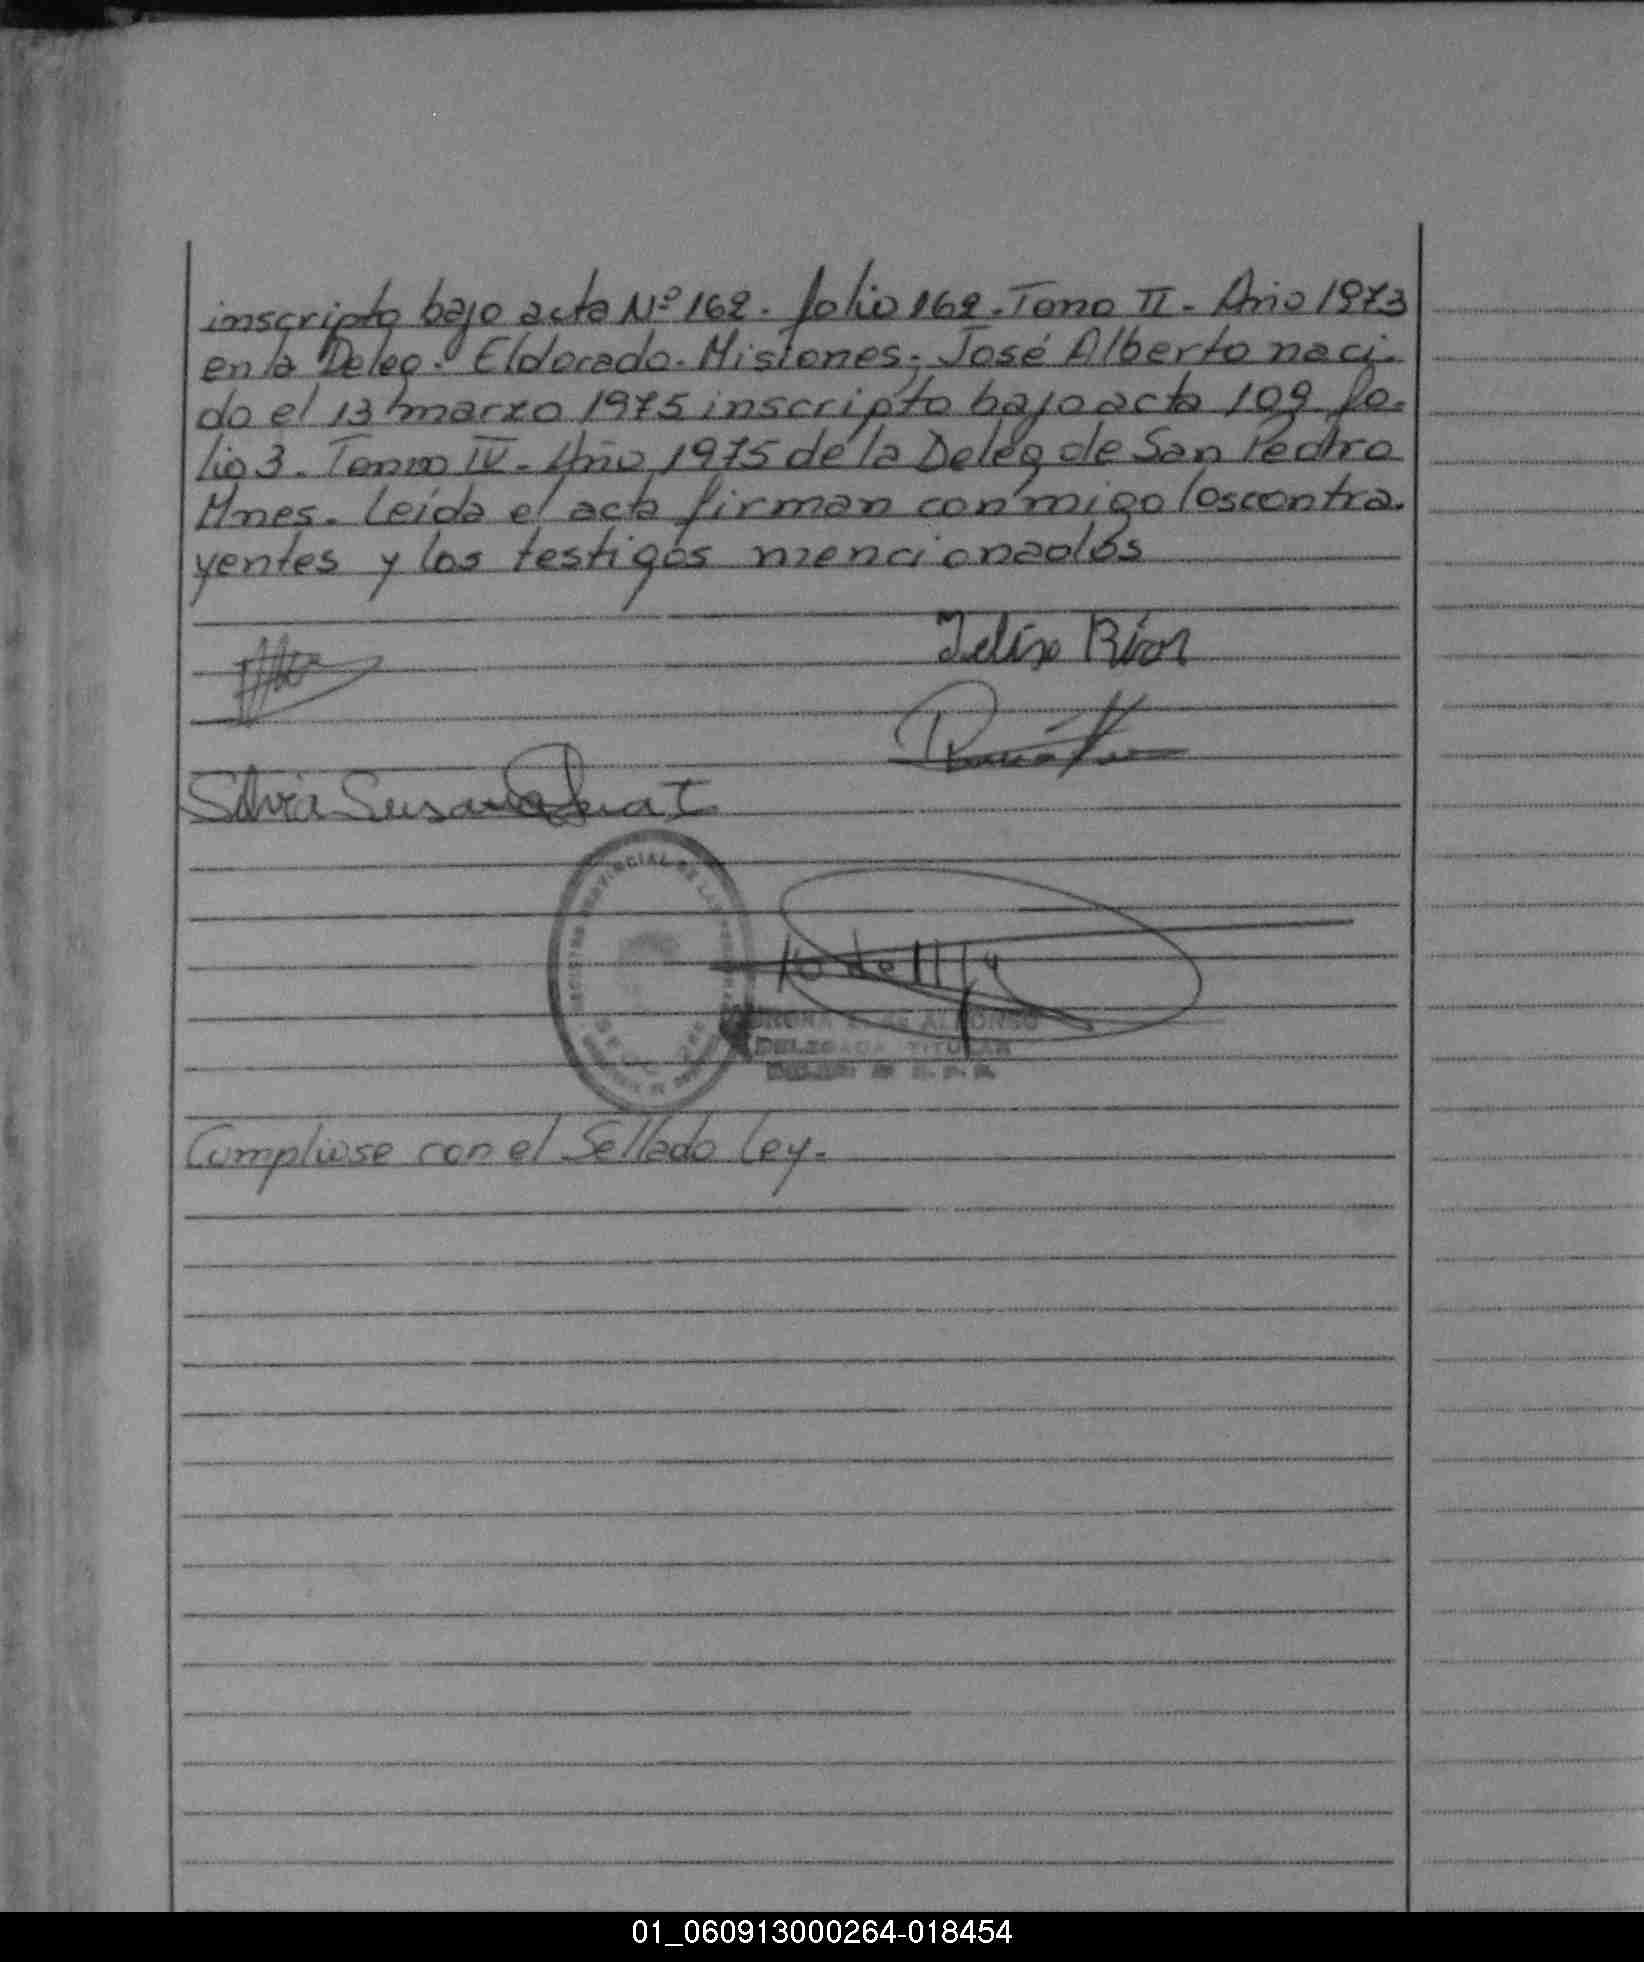 inscripto bajo acta Nº 162. folio 162. Tomo II. Año 1973
en la Deleg. Eldorado. Misiones; José Alberto naci-
do el 13 marzo 1975 inscripto bajo acta 109 fo-
lio 3. Tomo IV. Año 1975 de la Deleg de San Pedro
Mnes. Leída el acta firman conmigo los contra-
yentes y los testigos mencionados
Felix Rios
Silvia Susana
PROVINCIAL DE LAS
ALFONSO
DELEGADA TITULAR
Cumpliose con el Sellado Ley.
01_060913000264-018454